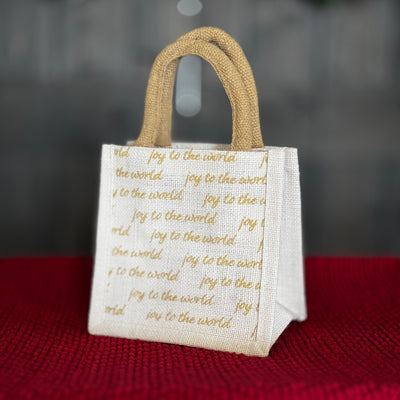 orld joy to the world jo
the world joy to the worl
oy to the world joy to the w
joy to the world joy t
orld joy to the world
the world joy to the wor
y to the world joy to the w
joy to the world joy
rld joy to the world